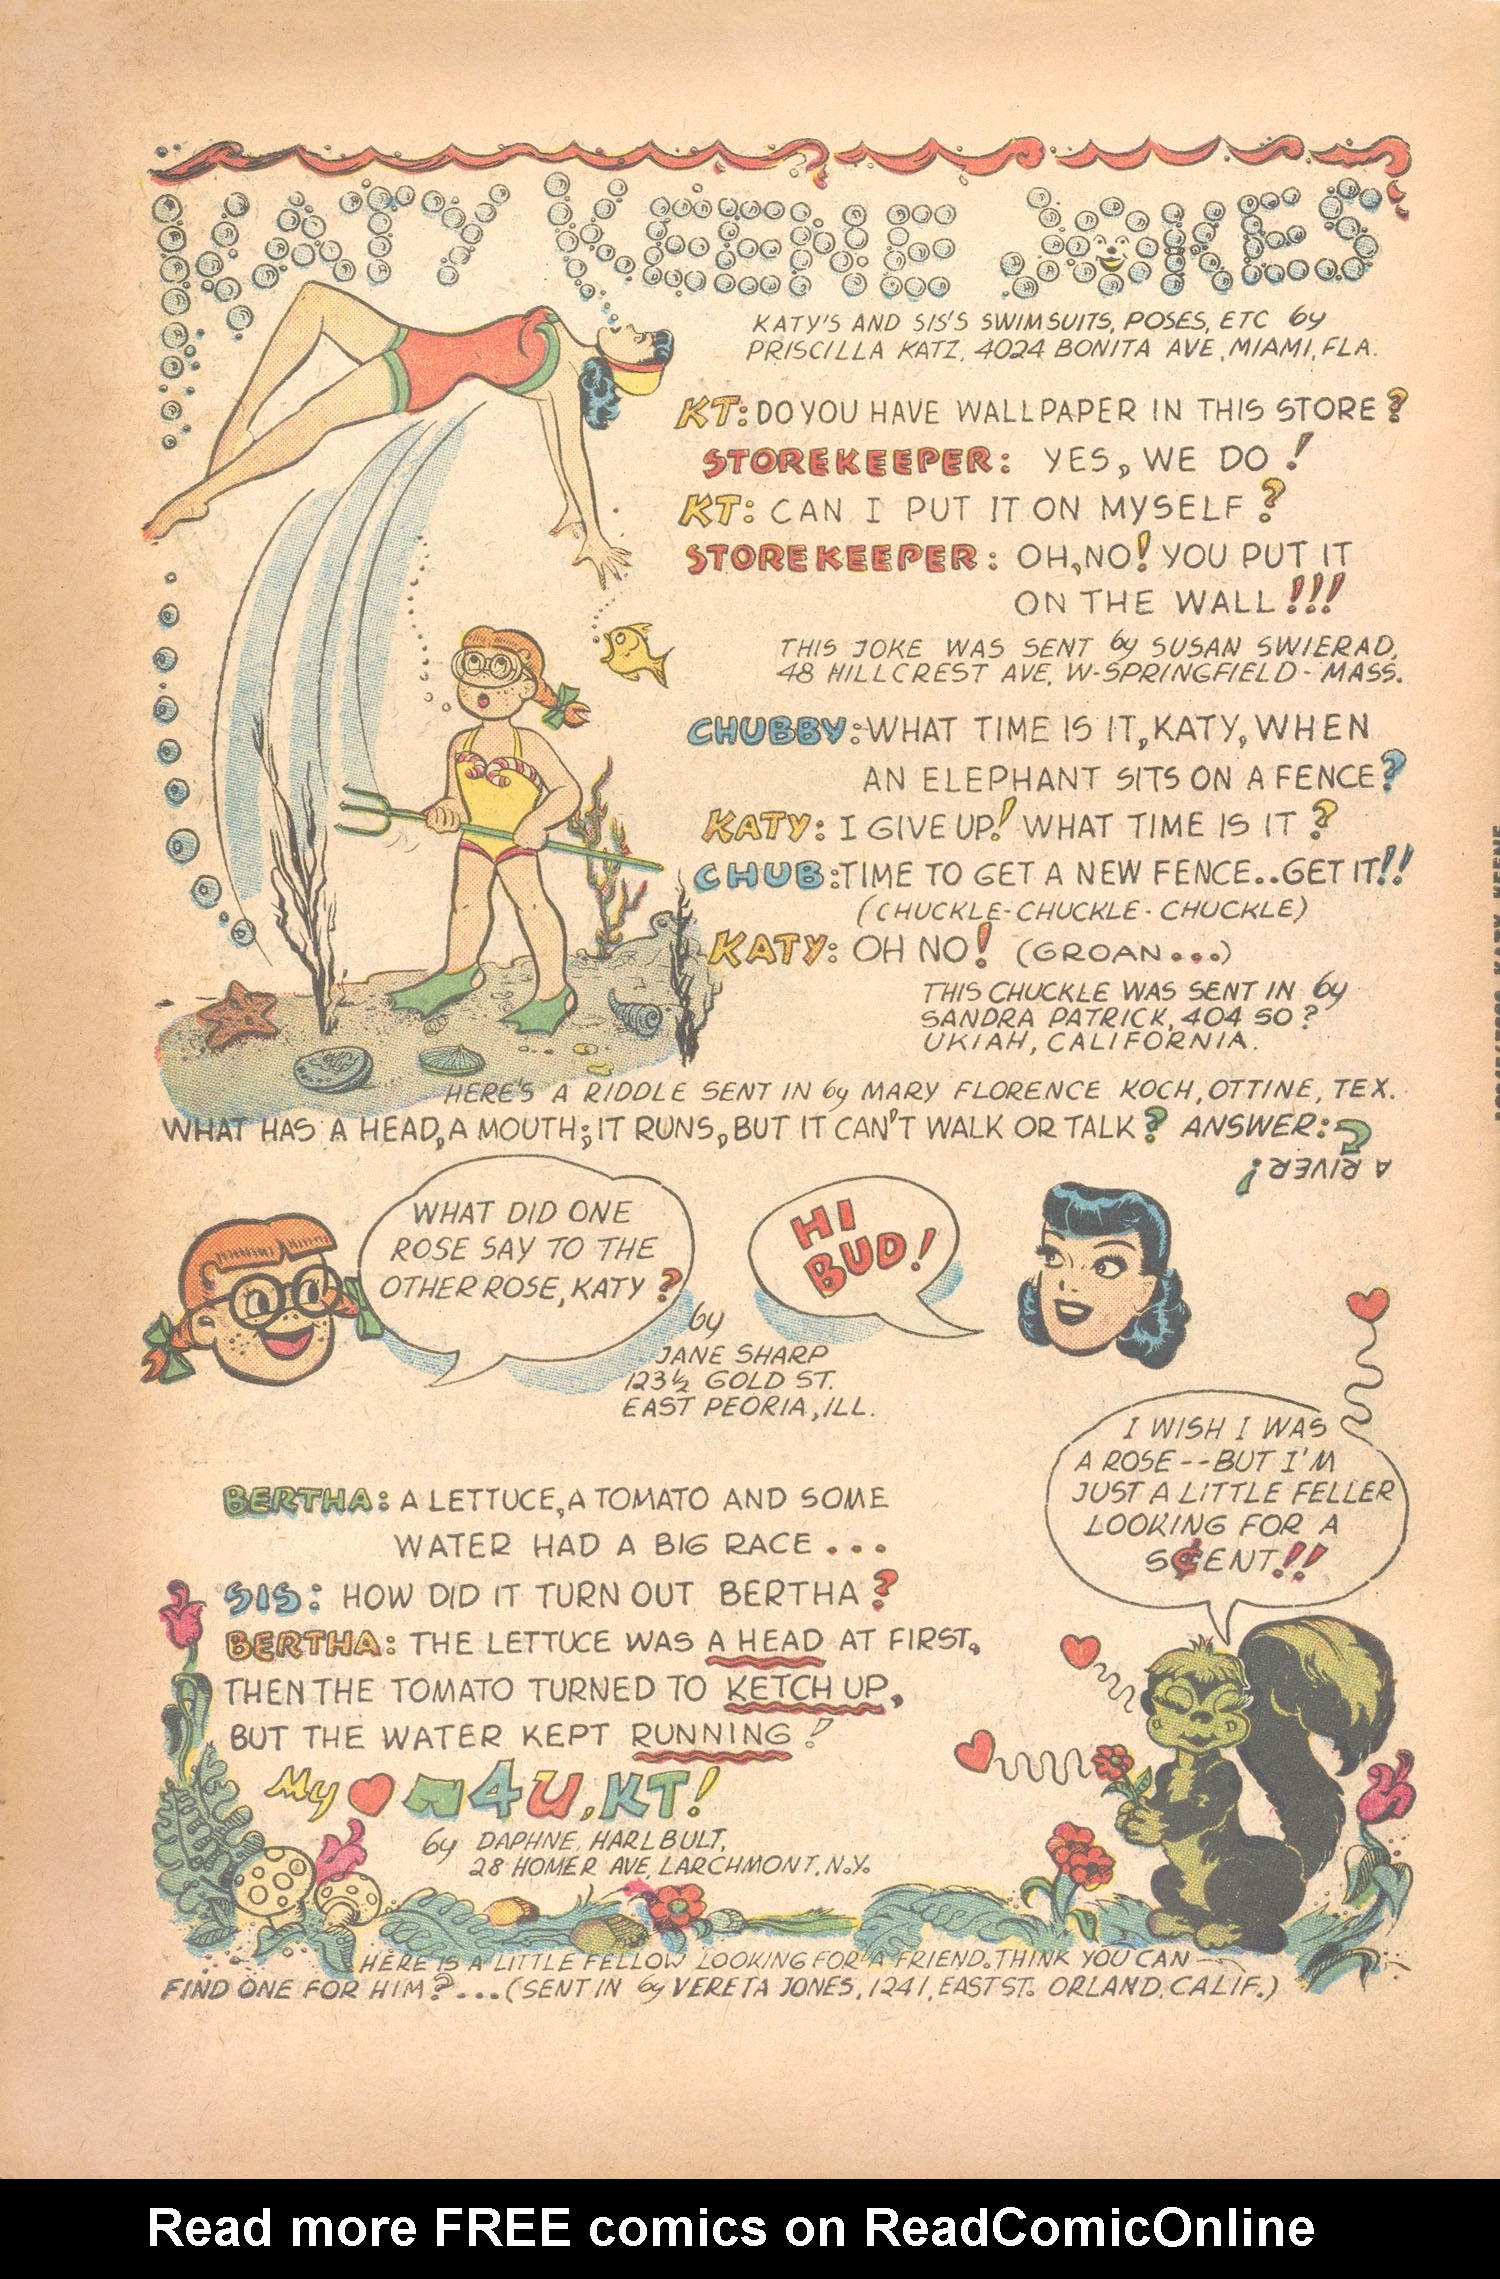 KATY KEENE JOKES
KATY'S AND SIS'S SWIMSUITS, POSES, ETC by
PRISCILLA KATZ, 4024 BONITA AVE, MIAMI, FLA.
KT: DO YOU HAVE WALLPAPER IN THIS STORE?
STOREKEEPER: YES, WE DO!
KT: CAN I PUT IT ON MYSELF?
STOREKEEPER: OH, NO! YOU PUT IT
ON THE WALL!!!
THIS JOKE WAS SENT by SUSAN SWIERAD,
48 HILLCREST AVE, W-SPRINGFIELD - MASS.
CHUBBY: WHAT TIME IS IT, KATY, WHEN
AN ELEPHANT SITS ON A FENCE?
KATY: I GIVE UP! WHAT TIME IS IT?
CHUB: TIME TO GET A NEW FENCE.. GET IT!!
(CHUCKLE-CHUCKLE-CHUCKLE)
KATY: OH NO! (GROAN...)
THIS CHUCKLE WAS SENT IN by
SANDRA PATRICK, 404 SO?
UKIAH, CALIFORNIA.
HERE'S A RIDDLE SENT IN by MARY FLORENCE KOCH, OTTINE, TEX.
WHAT HAS A HEAD, A MOUTH; IT RUNS, BUT IT CAN'T WALK OR TALK? ANSWER:
A RIVER!
WHAT DID ONE
ROSE SAY TO THE
OTHER ROSE, KATY?
HI
BUD!
by
JANE SHARP
123½ GOLD ST.
EAST PEORIA, ILL.
I WISH I WAS
A ROSE -- BUT I'M
JUST A LITTLE FELLER
LOOKING FOR A
S¢ENT!!
BERTHA: A LETTUCE, A TOMATO AND SOME
WATER HAD A BIG RACE...
SIS: HOW DID IT TURN OUT BERTHA?
BERTHA: THE LETTUCE WAS A HEAD AT FIRST,
THEN THE TOMATO TURNED TO KETCH UP,
BUT THE WATER KEPT RUNNING!
My ♥ N 4 U, KT!
by DAPHNE HARLBULT,
28 HOMER AVE, LARCHMONT, N.Y.
HERE IS A LITTLE FELLOW LOOKING FOR A FRIEND. THINK YOU CAN
FIND ONE FOR HIM?...(SENT IN by VERETA JONES, 1241, EAST ST. ORLAND, CALIF.)
Read more FREE comics on ReadComicOnline